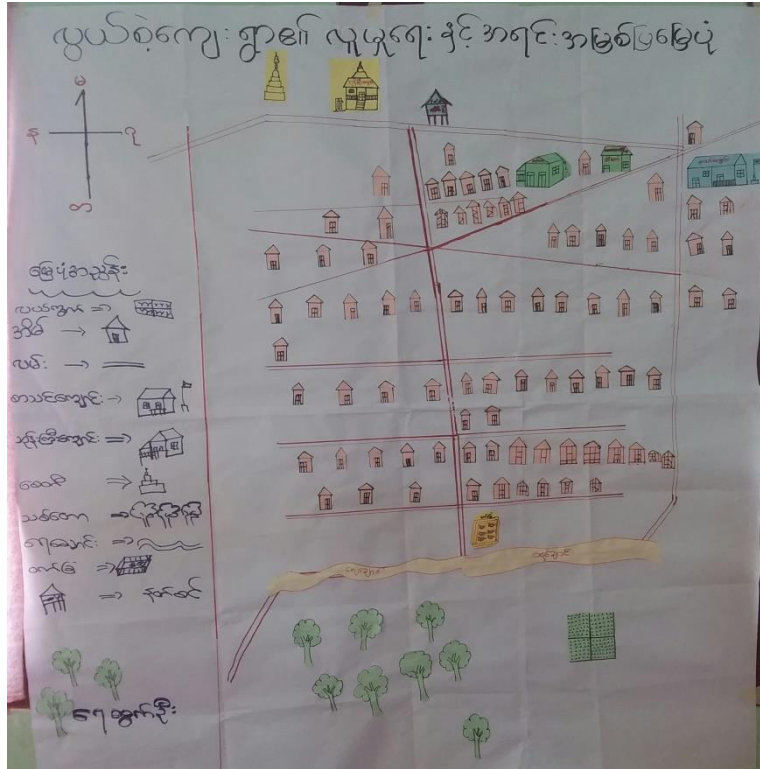 လွယ်စဲ့ကျေးရွာ၏ လူမှုရေး နှင့် အရင်းအမြစ်ပြမြေပုံ
မ
န
ည
တ
မြေပုံအညွှန်း
လယ်ကွက် =>
အိမ် →
လမ်း →
စာသင်ကျောင်း →
ဘုန်းကြီးကျောင်း =>
စေတီ =>
သစ်တော →
ရေချောင်း =>
=>
=> နတ်စင်
ရေချောင်း
ရေချောင်း
ရေထွက်ဦး